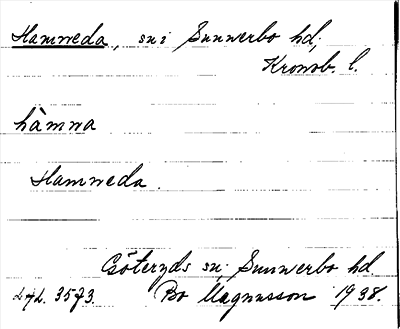 Hamneda, sn i Sunnerbo hd,
Kronob. l.
hàmna
Hamneda.
Göteryds sn Sunnerbo hd.
Lyd. 3573. Bo Magnusson 1938.